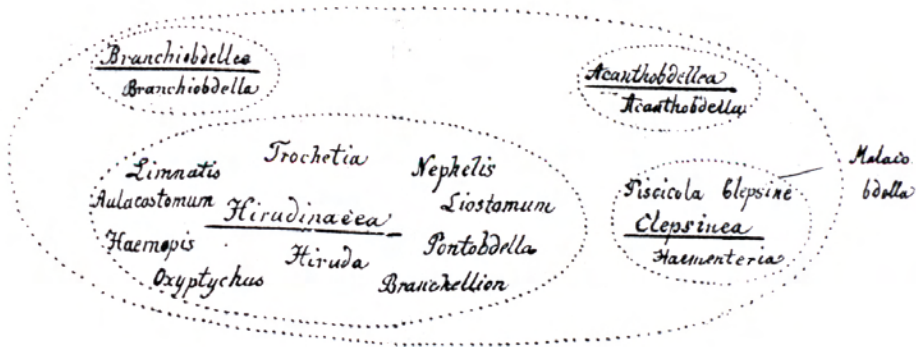 Branchiobdellea
Branchiobdella
Acanthobdellea
Acanthobdella
Trochetia
Limnatis
Nephelis
Aulacostomum
Hirudinacea
Liostomum
Haemopis
Hiruda
Pontobdella
Oxyptychus
Branchellion
Piscicola Clepsine
Clepsinea
Haementeria
Malaco
bdella